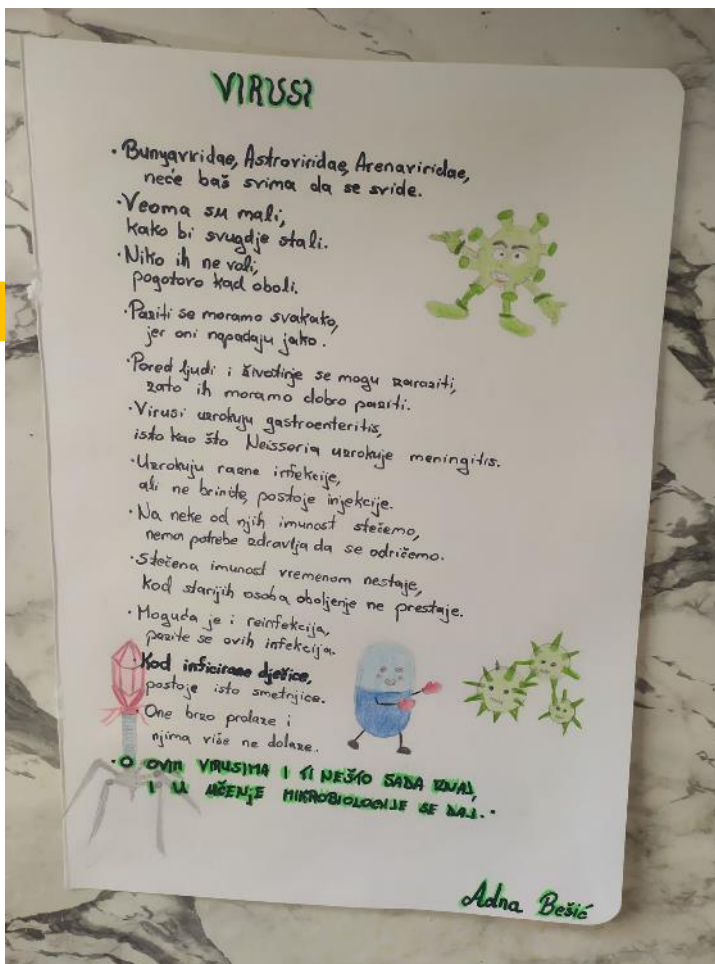 VIRUSI
· Bunyaviridae, Astroviridae, Arenaviridae,
neće baš svima da se svide.
· Veoma su mali,
kako bi svugdje stali.
· Niko ih ne voli,
pogotovo kad oboli.
· Paziti se moramo svakako,
jer oni napadaju jako.
· Pored ljudi i životinje se mogu zaraziti,
zato ih moramo dobro paziti.
· Virusi uzrokuju gastroenteritis,
isto kao što Neisseria uzrokuje meningitis.
· Uzrokuju razne infekcije,
ali ne brinite, postoje injekcije.
· Na neke od njih imunost stečemo,
nema potrebe zdravlja da se odričemo.
· Stečena imunost vremenom nestaje,
kod starijih osoba oboljenje ne prestaje.
· Moguća je i reinfekcija,
pazite se ovih infekcija.
· Kod inficirane djećice,
postoje isto smetnjice.
· One brzo prolaze i
njima više ne dolaze.
· O OVIM VIRUSIMA I TI NEŠTO SADA ZNAJ,
I U UČENJE MIKROBIOLOGIJE SE DAJ. ·
Adna Bešić